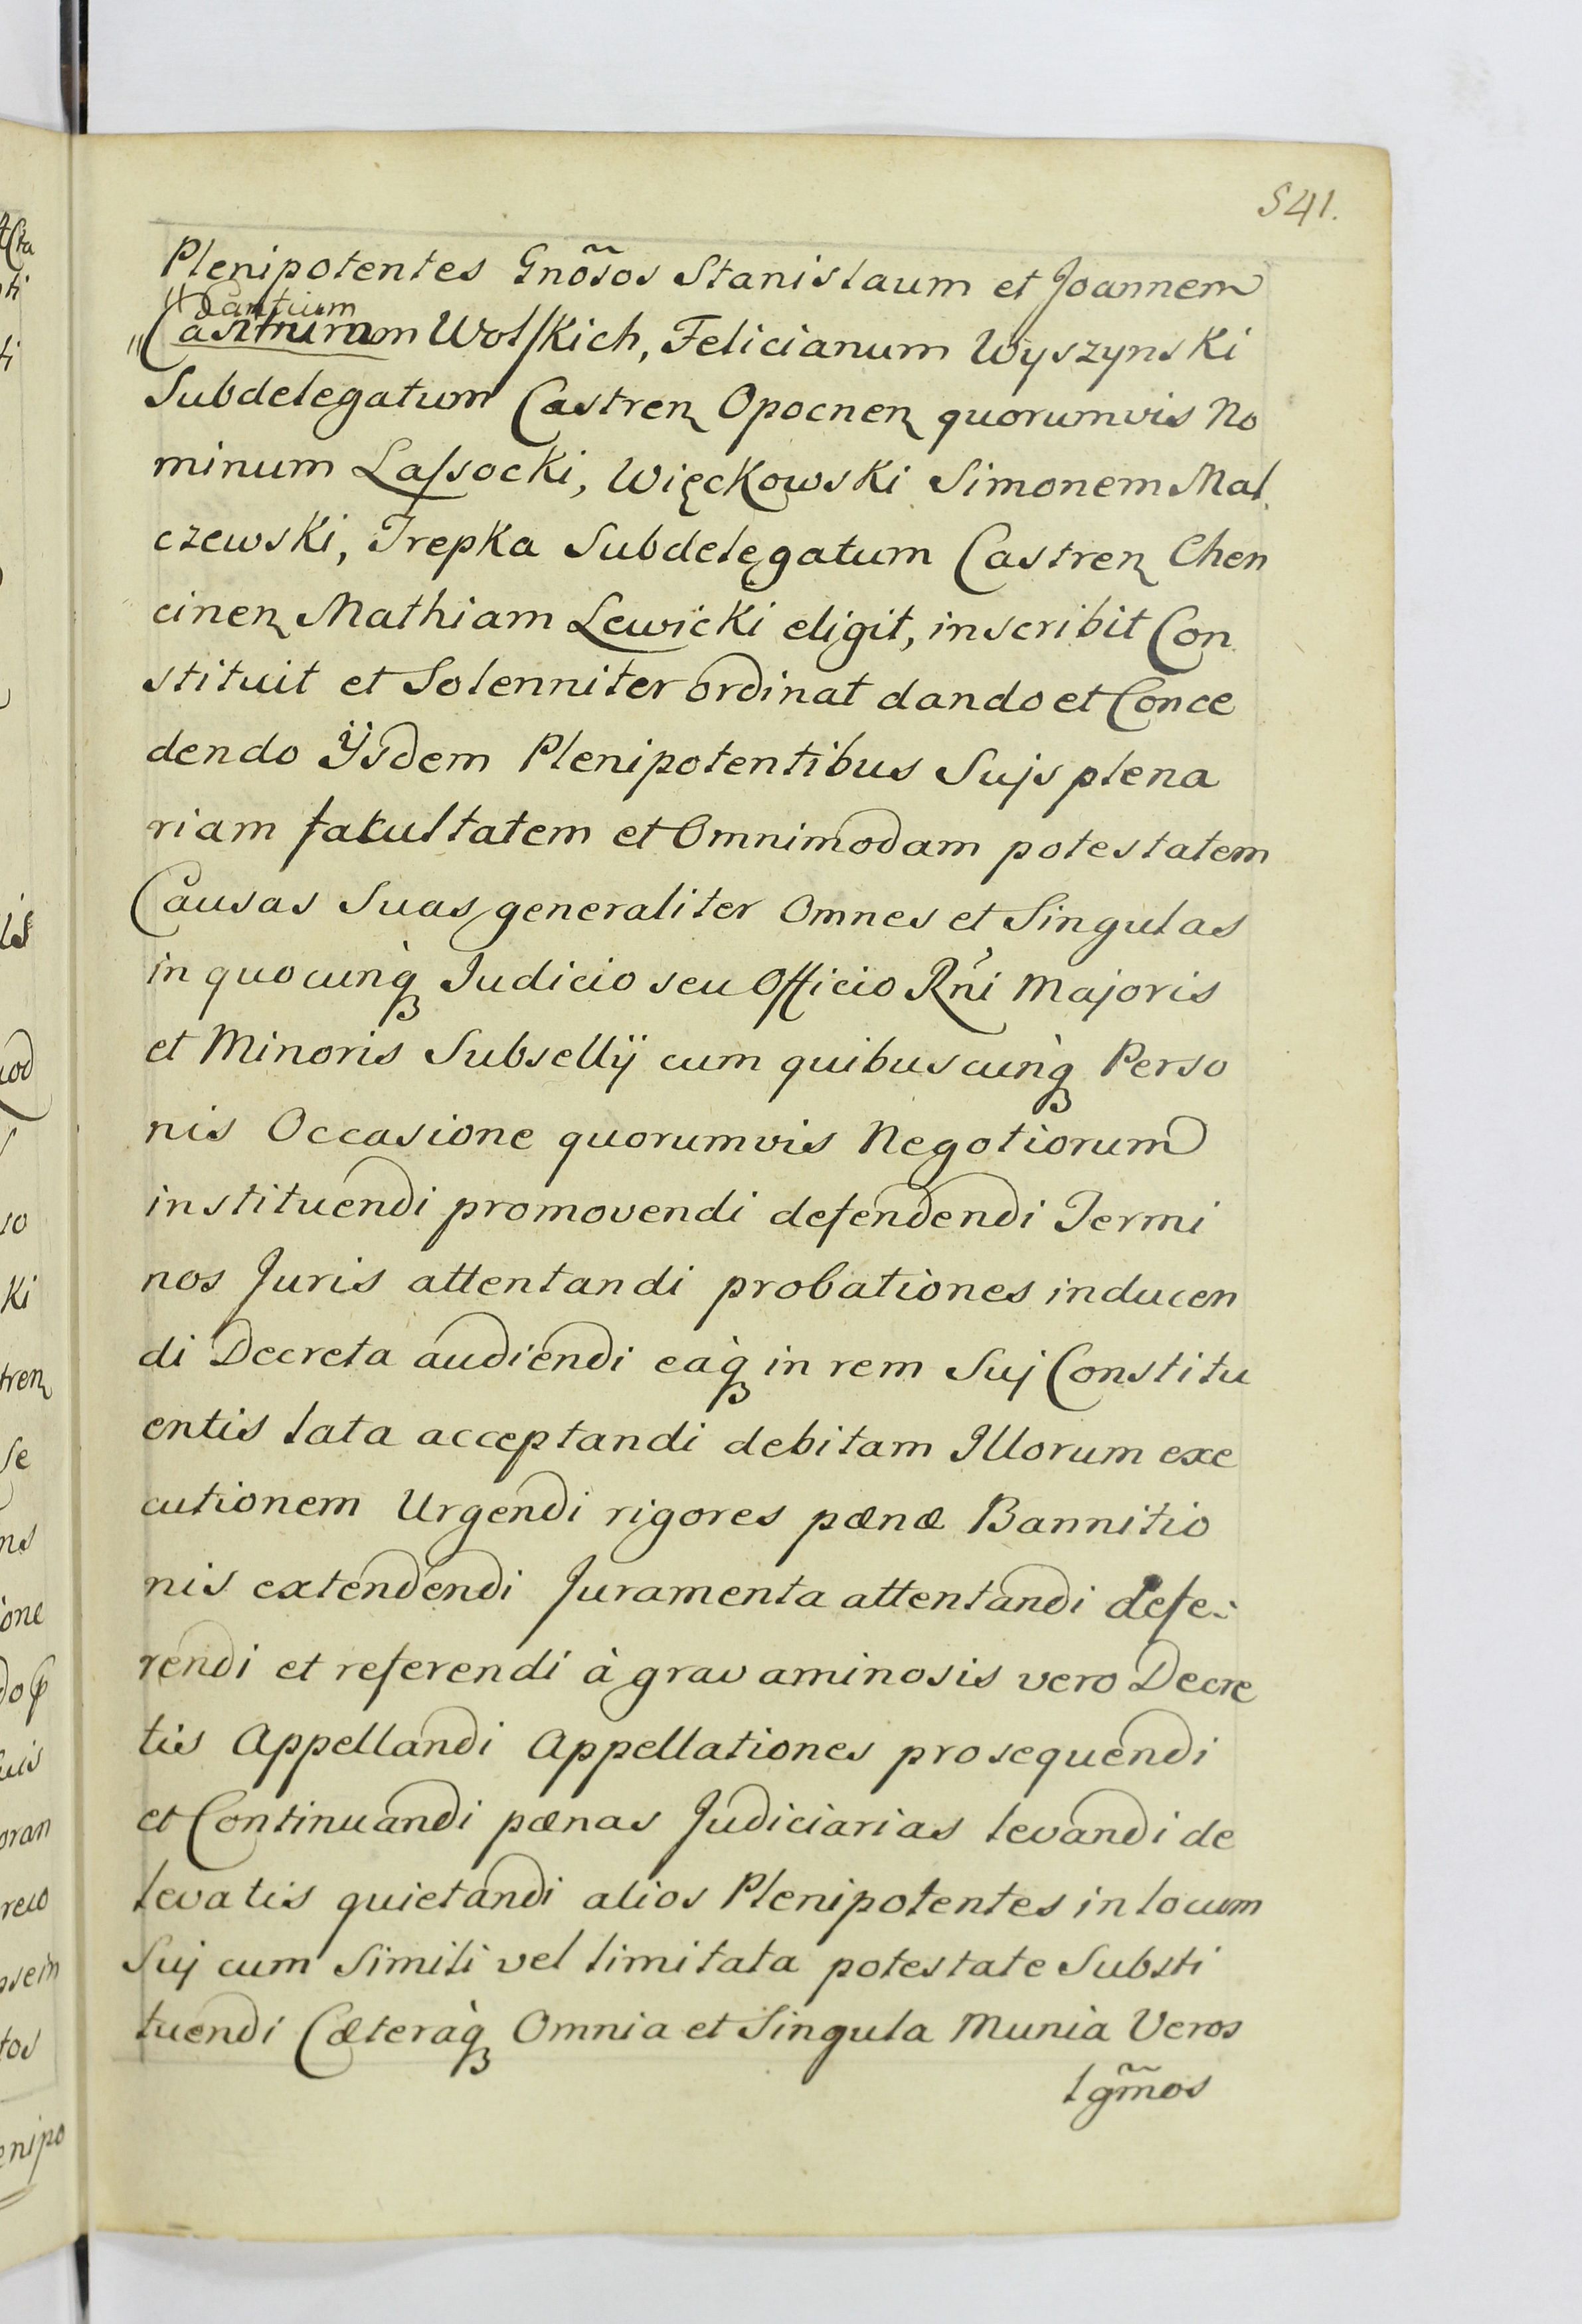 541.
Plenipotentes Gnõsos Stanislaum et Joannem
Cantium
Wolskich, Felicianum Wyszynski
Subdelegatum Castren Opocnen quorumvis No
minum Lassocki, Więckowski Simonem Mal
czewski, Trepka Subdelegatum Castren Chen
cinen Mathiam Lewicki eligit, inscribit Con
stituit et Solenniter ordinat dando et Conce
dendo Ÿsdem Plenipotentibus Sujs plena
riam facultatem et Omnimodam potestatem
Causas Suas generaliter Omnes et Singulas
in quocunq̀ꝫ Judicio seu Officio Rñi Majoris
et Minoris Subsellÿ cum quibuscunq̀ꝫ Perso
nis Occasione quorumvis Negotiorum
instituendi promovendi defendendi Termi
nos Juris attentandi probationes inducen
di Decreta audiendi eaq̀ꝫ in rem Suj Constitu
entis lata acceptandi debitam Illorum exe
cutionem Urgendi rigores pænæ Bannitio
nis extendendi Juramenta attentandi defe-
rendi et referendi à gravaminosis vero Decre
tis Appellandi Appellationes prosequendi
et Continuandi pænas Judiciarias levandi de
levatis quietandi alios Plenipotentes in locum
Suj cum Simili vel limitata potestate Substi
tuendi Cæteraq̀ꝫ Omnia et Singula Munia Veros
lgm̃os